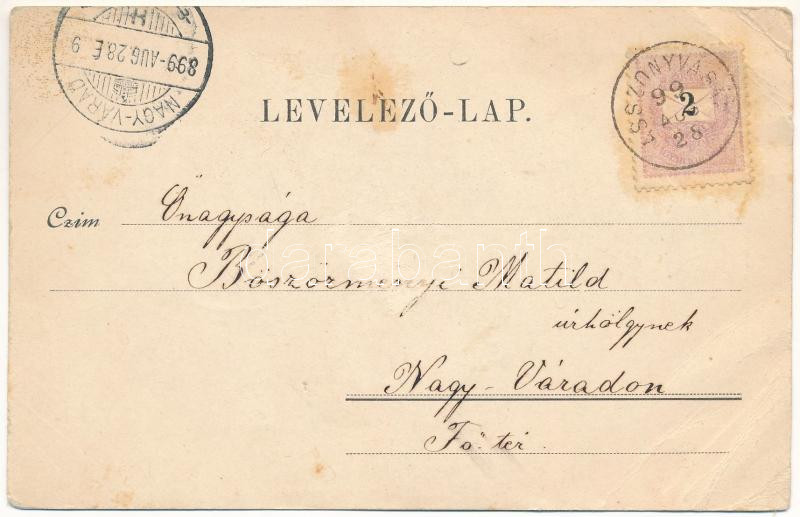 NAGY-VÁRAD
899-AUG.28.É 9
LEVELEZŐ-LAP.
2
99
28
Czim Őnagysága
Böszörményi Matild
úrhölgynek
Nagy-Váradon
Fő-tér.
darabanth